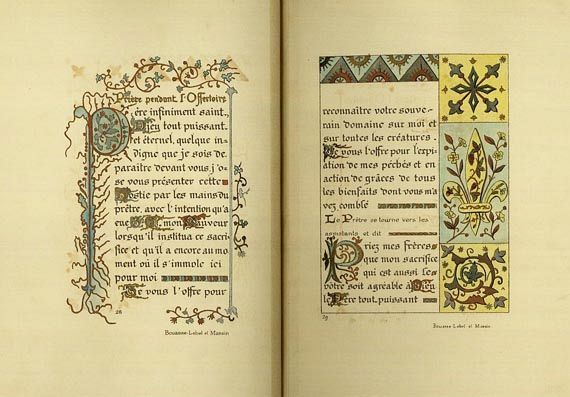 Prière pendant l'Offertoire
Père infiniment saint,
Dieu tout puissant
et éternel, quelque in-
digne que je sois de
paraître devant vous j'o-
se vous présenter cette
Hostie par les mains du
prêtre, avec l'intention qu'a
eue J. C. mon Sauveur
lorsqu'il institua ce sacri-
fice et qu'il a encore au mo-
ment où il s'immole ici
pour moi
Je vous l'offre pour
28
Bouasse-Lebel et Massin
reconnaître votre souve-
rain domaine sur moi et
sur toutes les créatures.
Je vous l'offre pour l'expi-
ation de mes péchés et en
action de grâces de tous
les bienfaits dont vous m'a
vez comblé
Le Prêtre se tourne vers les
assistants et dit
Priez mes frères
que mon sacrifice
qui est aussi le
votre soit agréable à Dieu
le Père tout puissant
29
Bouasse-Lebel et Massin